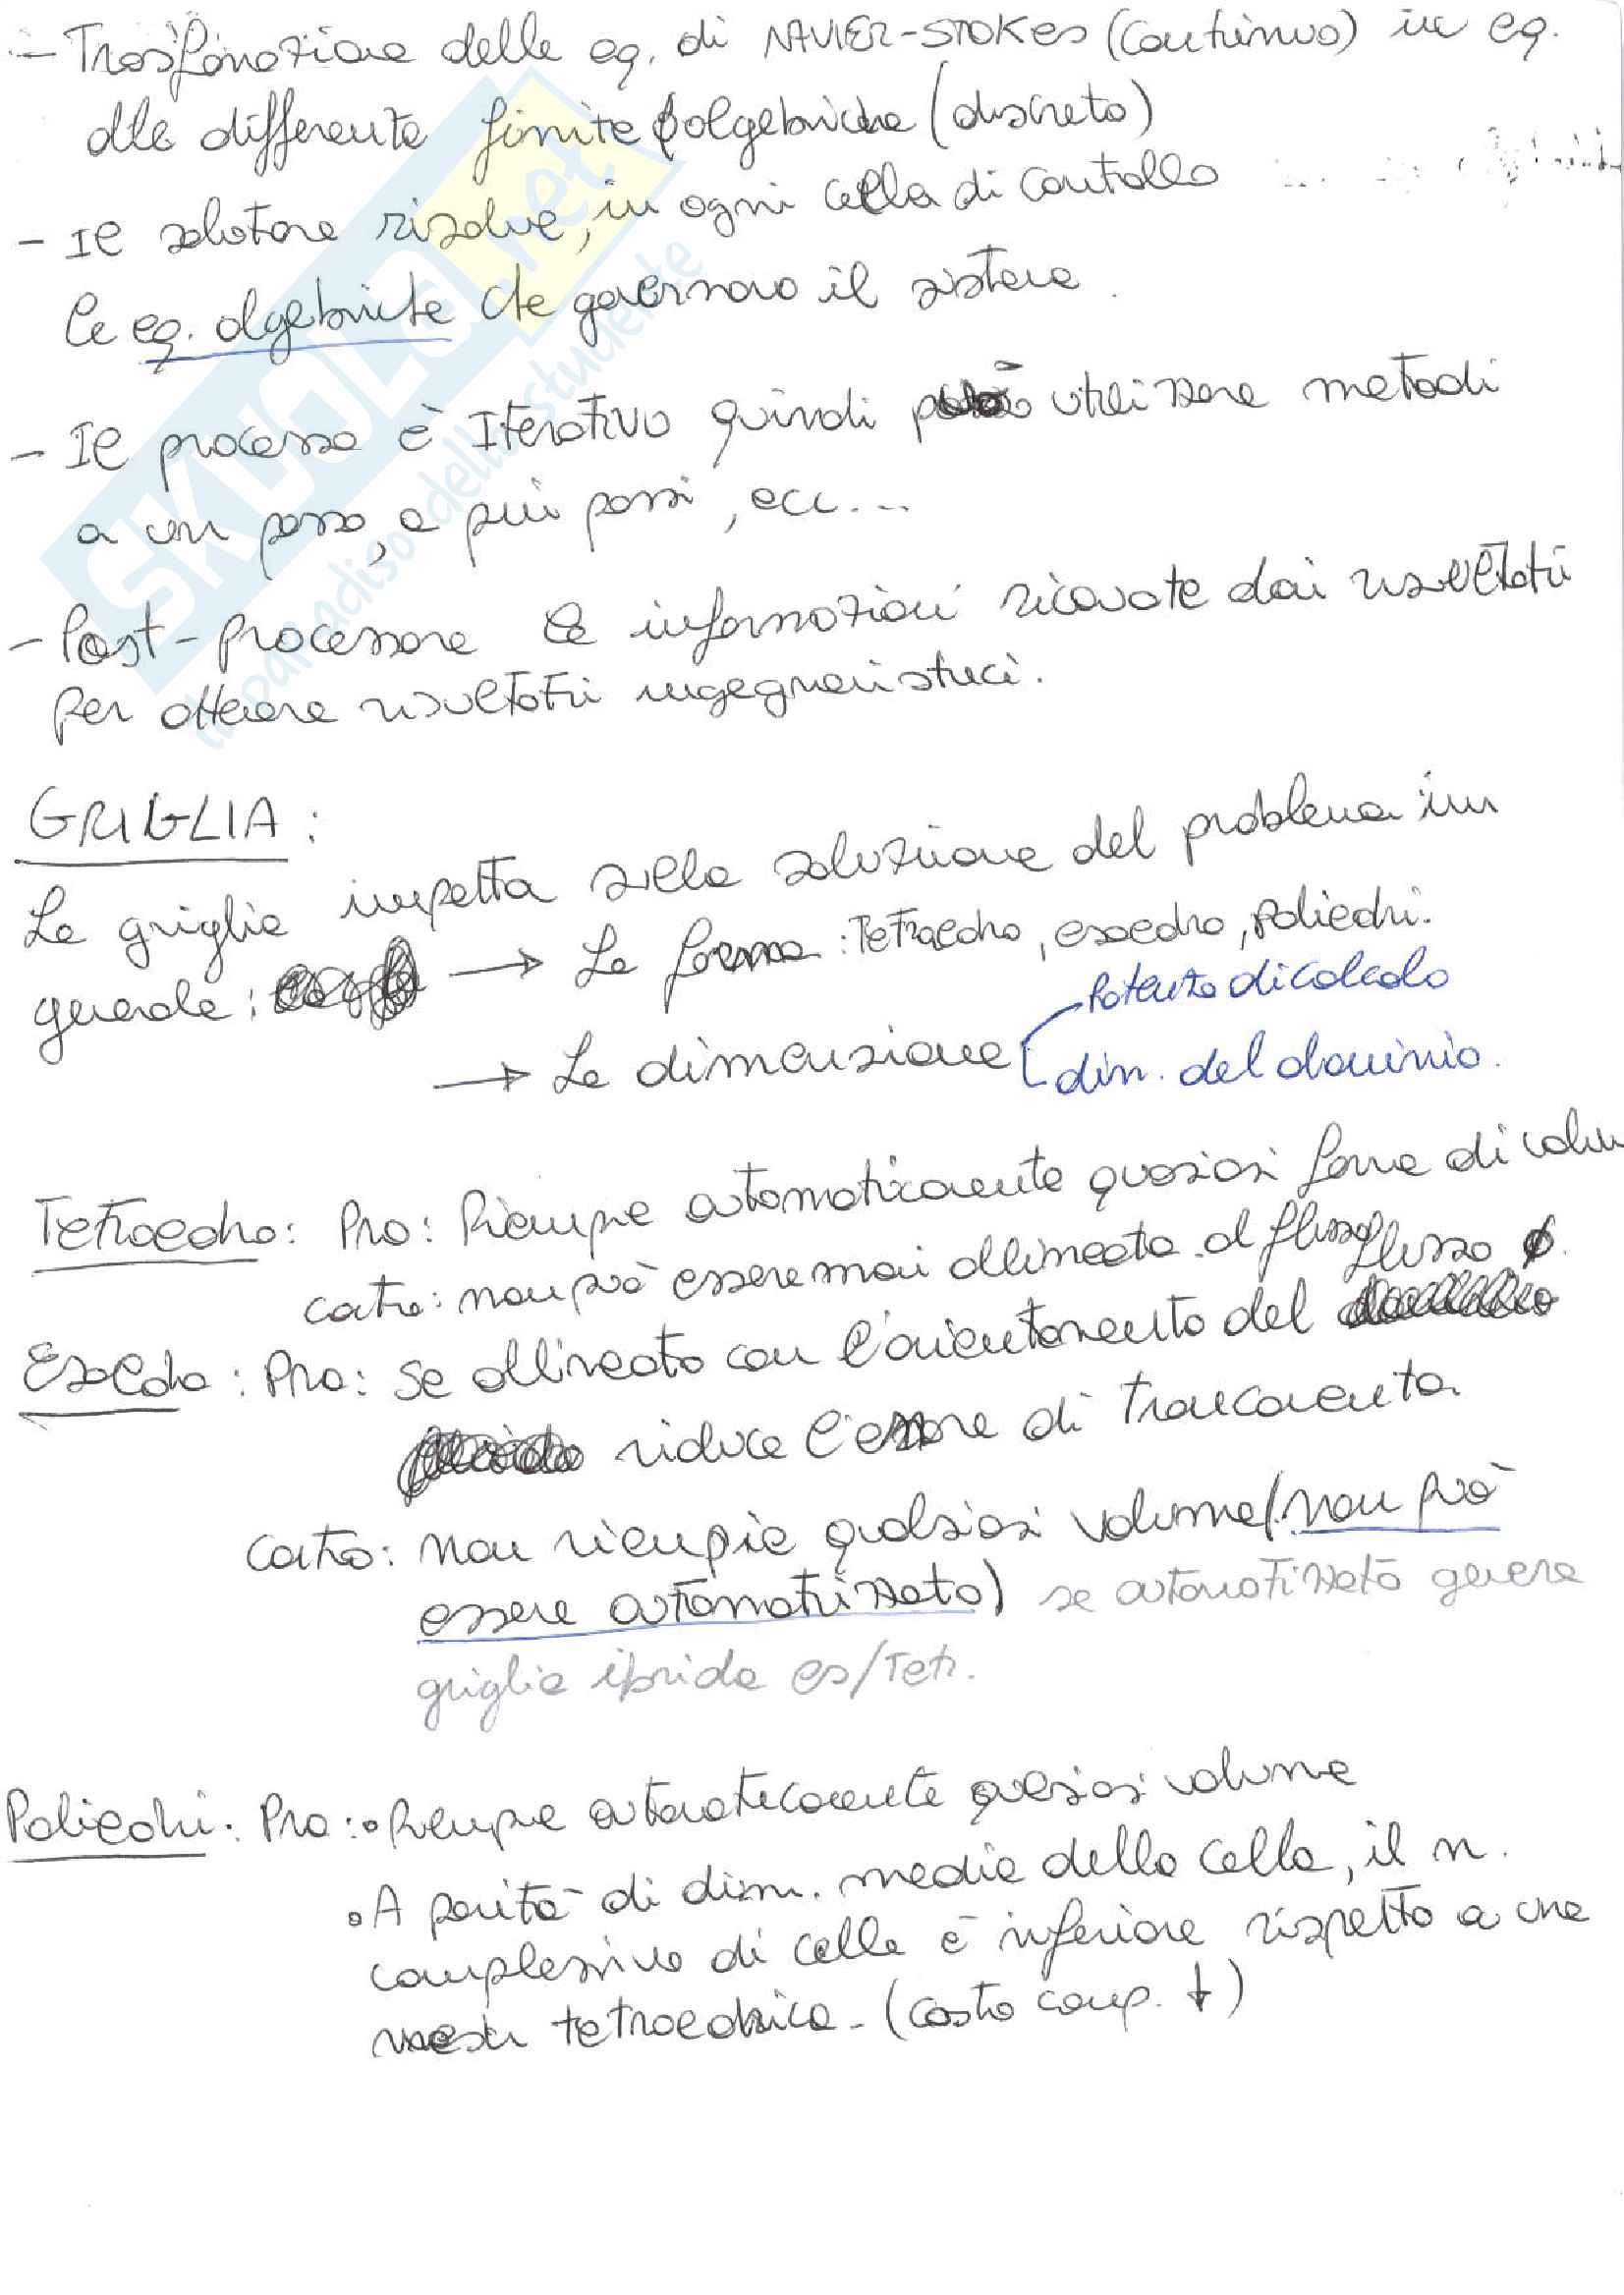 - Trasformazione delle eq. di NAVIER-STOKES (Continuo) in eq.
alle differenze finite/algebriche (discreto)
- Il solutore risolve, in ogni cella di controllo
le eq. algebriche che governano il sistema.
- Il processo è Iterativo quindi può utilizzare metodi
a un passo, a più passi, ecc...
- Post-processare le informazioni ricavate dai risultati
per ottenere risultati ingegneristici.
GRIGLIA:
La griglia impatta sulla soluzione del problema in
generale: → La forma: Tetraedro, esaedro, poliedri.
Potenza di calcolo
→ La dimensione
dim. del dominio.
Tetraedro: Pro: Riempie automaticamente qualsiasi forma di volum
contro: non può essere mai allineata al flusso
Esaedro: Pro: se allineato con l'orientamento del flusso
riduce l'errore di troncamento
Contro: non riempie qualsiasi volume (non può
essere automatizzato) se automatizzata genera
griglia ibrida es/Tetr.
Poliedri: Pro: • Riempie automaticamente qualsiasi volume
• A parità di dim. media della cella, il n.
complessivo di celle è inferiore rispetto a una
mesh tetraedrica. (costo comp. ↓)
SKUOLA.net
il paradiso dello studente